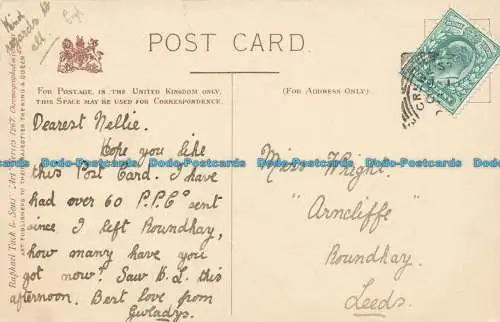 Kind
regards to
all
POST CARD.
FOR POSTAGE, IN THE UNITED KINGDOM ONLY,
THIS SPACE MAY BE USED FOR CORRESPONDENCE.
(FOR ADDRESS ONLY).
Raphael Tuck & Sons' "Art" Series 1267.
ART PUBLISHERS TO THEIR MAJESTIES THE KING & QUEEN
Dearest Nellie.
Hope you like
this Post Card. I have
had over 60 P.P.Cs sent
since I left Roundhay,
how many have you
got now? Saw H.L. this
afternoon. Best love from
Gwladys.
Miss Wright.
"Arncliffe"
Roundhay.
Leeds.
Dodo-Postcards Dodo-Postcards Dodo-Postcards Dodo-Postcards
Dodo-Postcards Dodo-Postcards Dodo-Postcards Dodo-Postcards